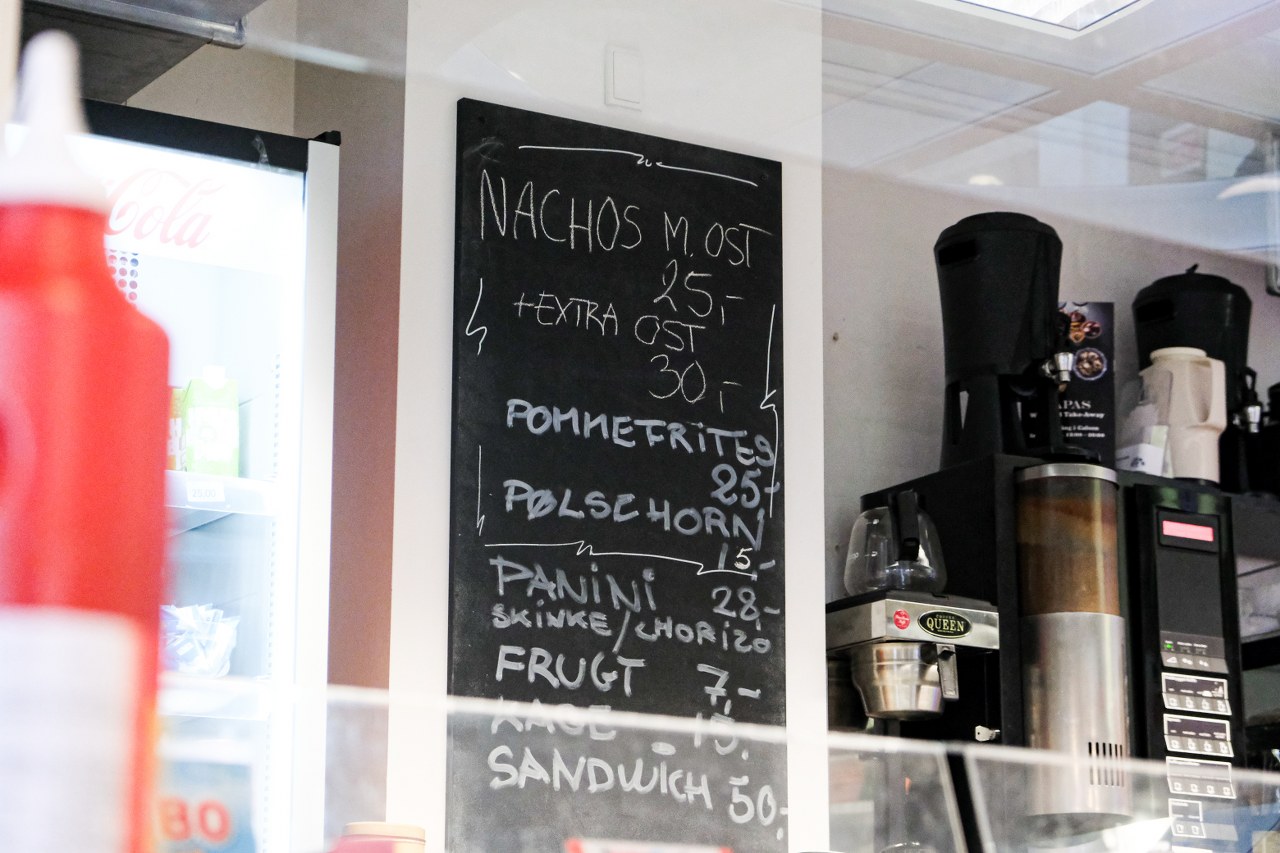 Cola
NACHOS M. OST
25,-
+EXTRA OST
30,-
POMMEFRITES
25,-
PØLSEHORN
15,-
PANINI 28,-
SKINKE/CHORIZO
FRUGT 7,-
KAGE - 15,-
SANDWICH 50,-
QUEEN
Take-Away